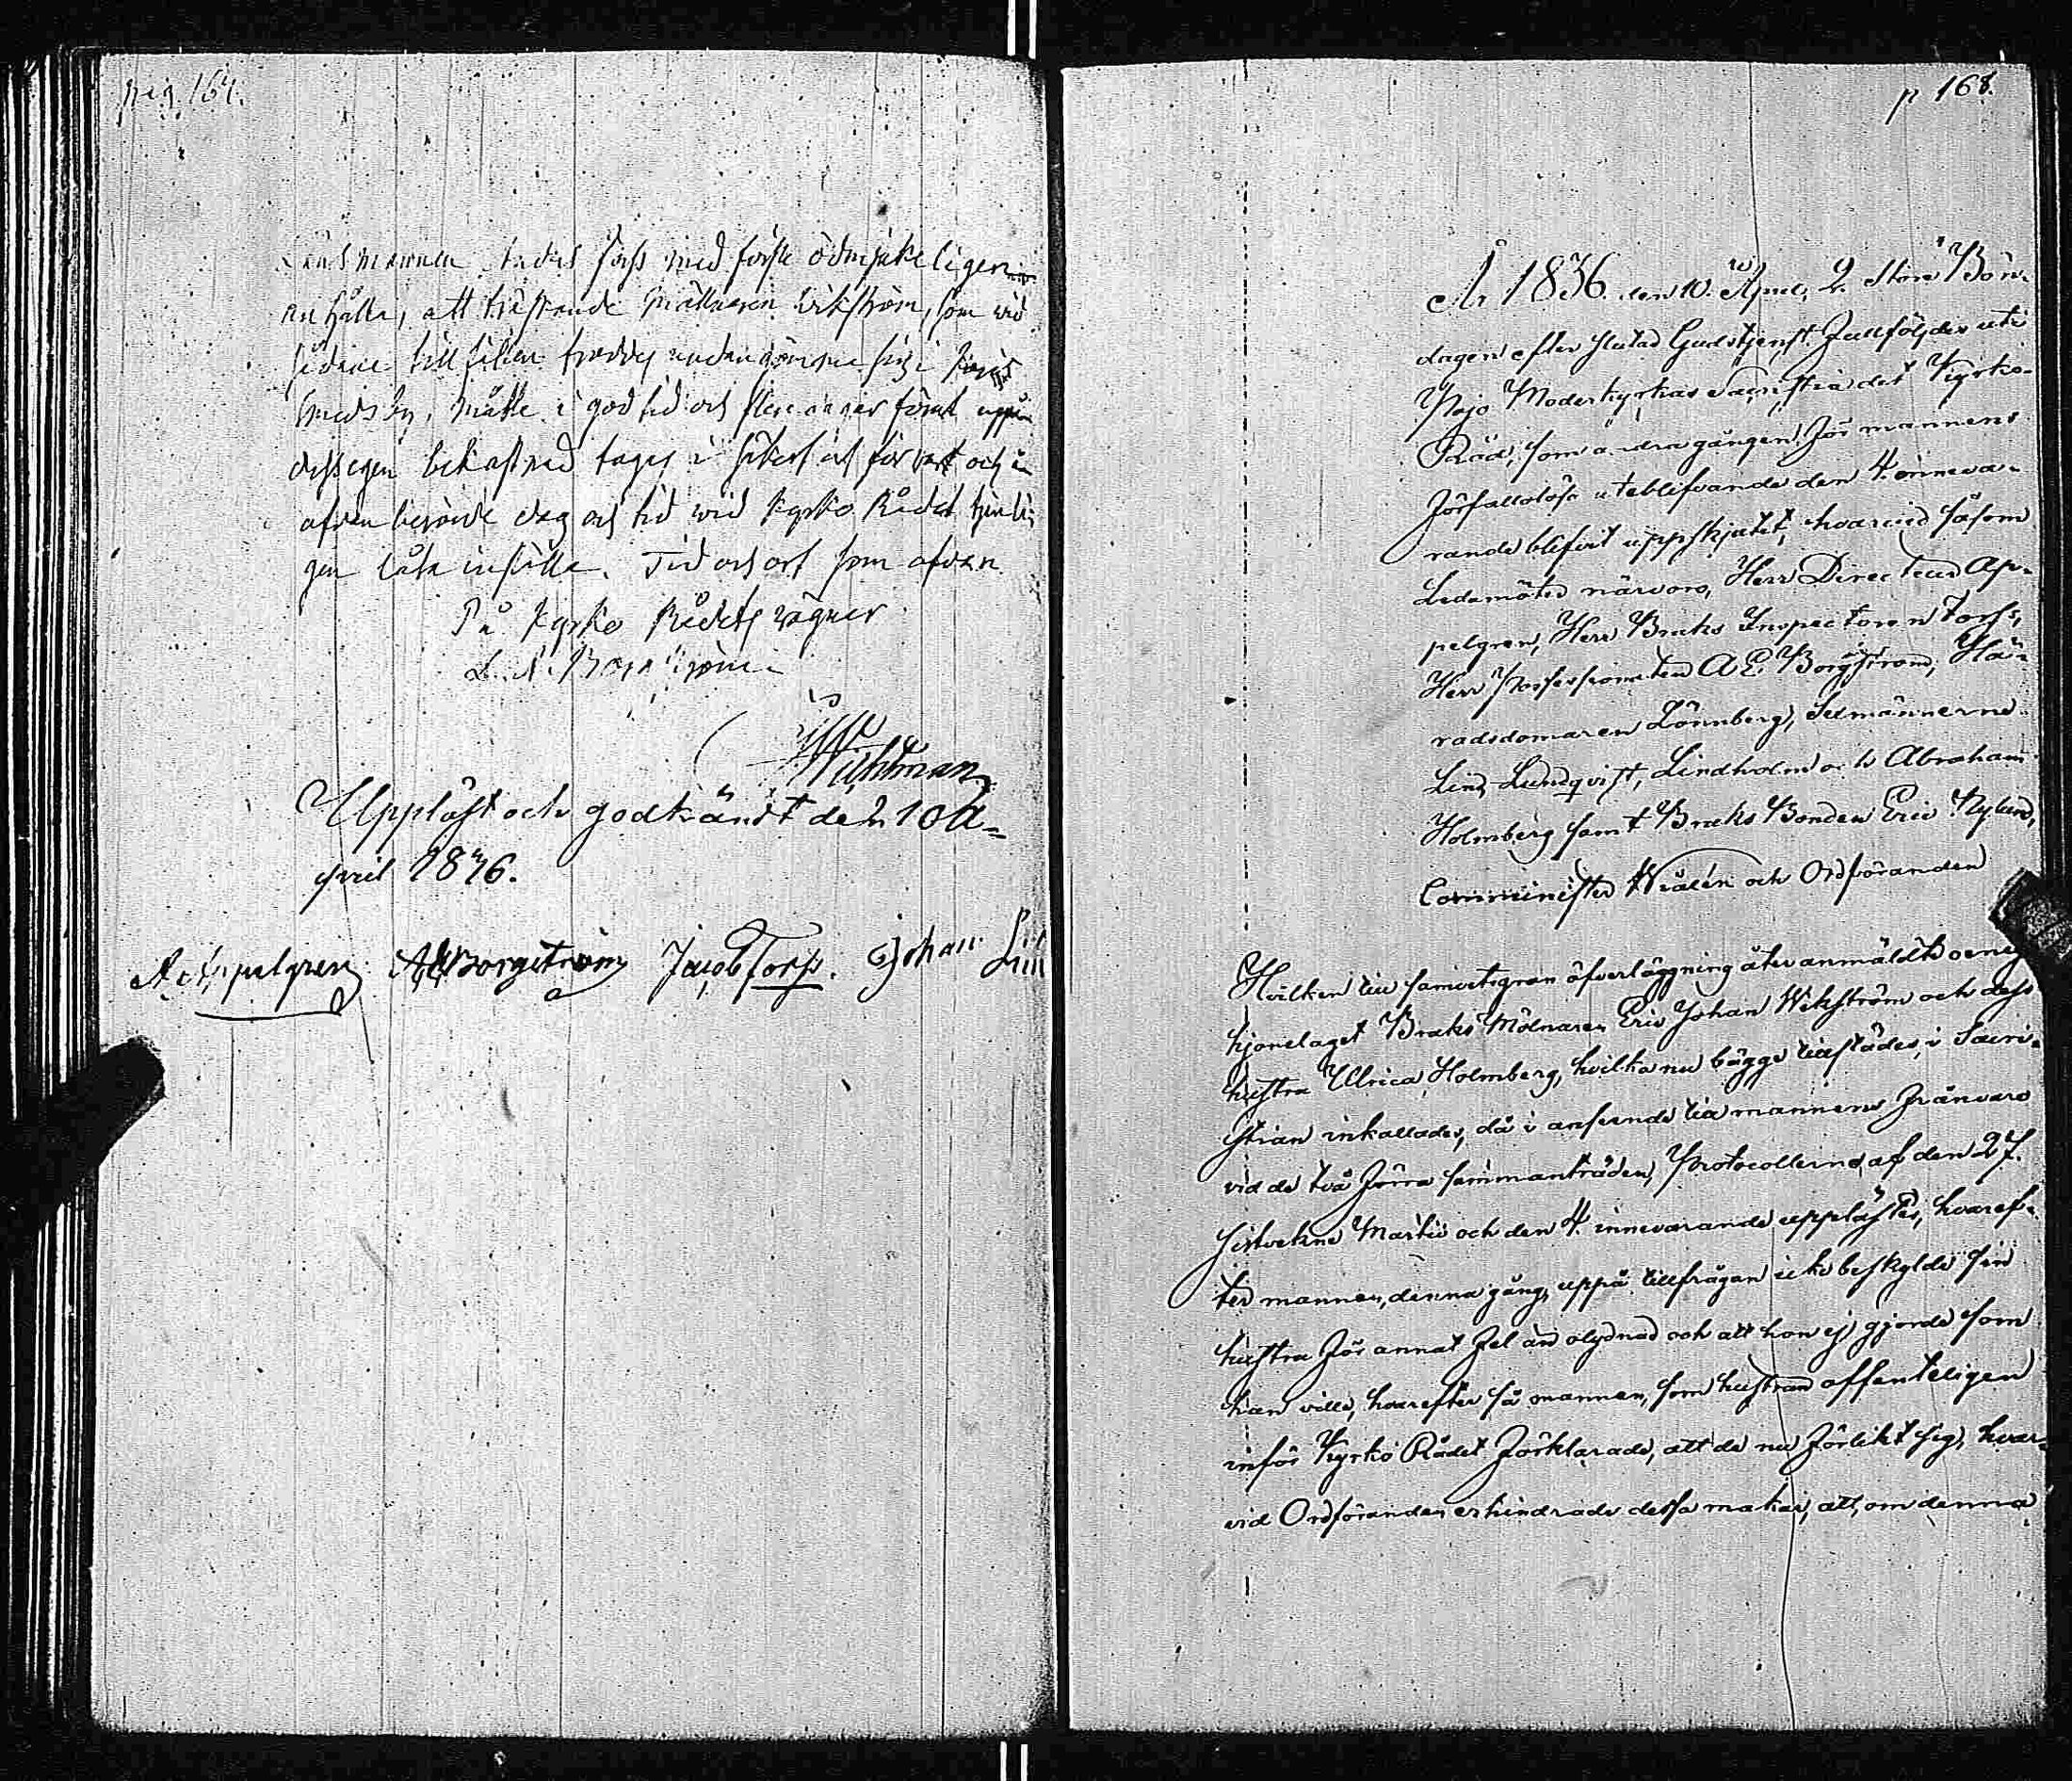 pag. 167.
Länsmannen härads Torss medförste ödmjukeligen
anhålla, att träffande Mölnaren Wikström, som wid
sådane tillfällen undangömma sig i
by, måtte i god tid och flere dagar förut uppå
egen bekostnad tagas i säkert förvar och å
ofvan berörde dag och tid wid Kyrko Rådet
gen låta inställa. Tid och ort som ofvan
På Kyrko Rådets vägnar
Wichtman
Uppläst och godkändt den 10 A=
pril 1836.
A. Appelgren. A E Borgström Jacob Torss. Johan Lin
p 168.
År 1836. den 10. April, 2. Stora Bön-
dagen efter slutad Gudstjenst fullföljdes uti
Pojo Moderkyrkas Sacristia det Kyrko-
Råd, som andra gången för mannens
förfallolösa uteblifvande den 4. inneva-
rande blifvit uppskjutet, hvarvid såsom
Ledamöter närvoro, Herr Directeur Ap-
pelgren, Herr Bruks Inspectoren Torss,
Herr Possessionaten A E. Borgström, Hä-
radsdomaren Lönnberg, Sexmännerne
Lind, Lundqvist, Lindholm och Abraham
Holmberg samt Bruks Bonden Eric Nylund,
Comminister Wialén och Ordföranden
Hvilken till samvetsgran öfverläggning åter anmäldte oeniga
hjonelaget Bruks Mölnaren Eric Johan Wikström och dess
hustra Ulrica Holmberg, hvilka nu bägge tillstädes, i Sacri-
stian inkallades, då i anseende till mannens frånvaro
vid de två förra sammanträden, Protocollerna af den 27.
sistvekne Martii och den 4. innevarande upplästes, hvaref-
ter mannen, denna gång, uppå tillfrågan icke beskylde sin
hustra för annat fel än olydnad och att hon ej gjorde som
han ville, hvarefter så mannen, som hustran offenteligen
inför Kyrko Rådet förklarade, att de nu förlikt sig, hvar-
vid Ordföranden erhindrade dessa makar, att, om denna